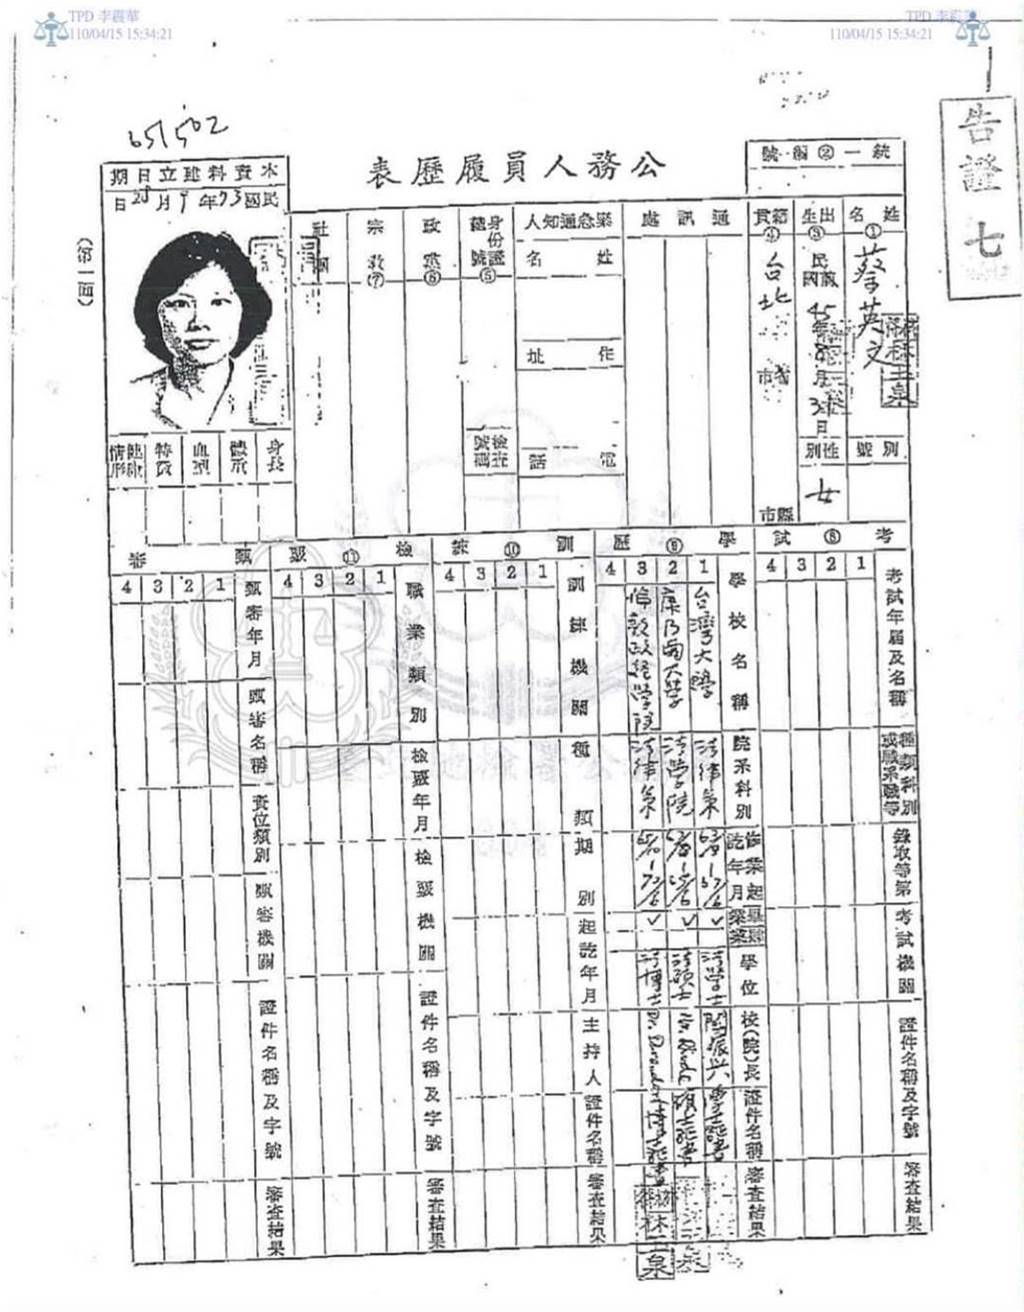 TPD 李震華
110/04/15 15:34:21
TPD 李震華
110/04/15 15:34:21
告證七
651502
公務人員履歷表
統一編號②
本資料建立日期
民國73年9月28日
(第一面)
姓名①
蔡英文
別號
出生③
民國
45年8月31日
性別
女
籍貫④
台北
市
縣市
通訊處
緊急通知人
姓名
住址
電話
身份證號碼⑤
檢查號碼
政黨⑥
宗教⑦
社團
身長
體重
血型
特徵
健康情形
考試⑧
1 2 3 4
考試年屆及名稱
種類科別或職系職等
錄取等第
考試機關
證件名稱及字號
審查結果
學歷⑨
1 2 3 4
學校名稱
台灣大學
康乃爾大學
倫敦政經學院
院系科別
法律系
法學院
法律系
修業起訖年月
畢業
肄業
學位
法學士
法碩士
法博士
校(院)長
閻振興
證件名稱
審查結果
訓練⑩
1 2 3 4
訓練機關
種類期別
起訖年月
主持人
證件名稱
審查結果
檢覈⑪
1 2 3 4
職業類別
檢覈年月
檢覈機關
證件名稱及字號
審查結果
甄審
1 2 3 4
甄審年月
甄審名稱
資位類別
甄審機關
證件名稱及字號
審查結果